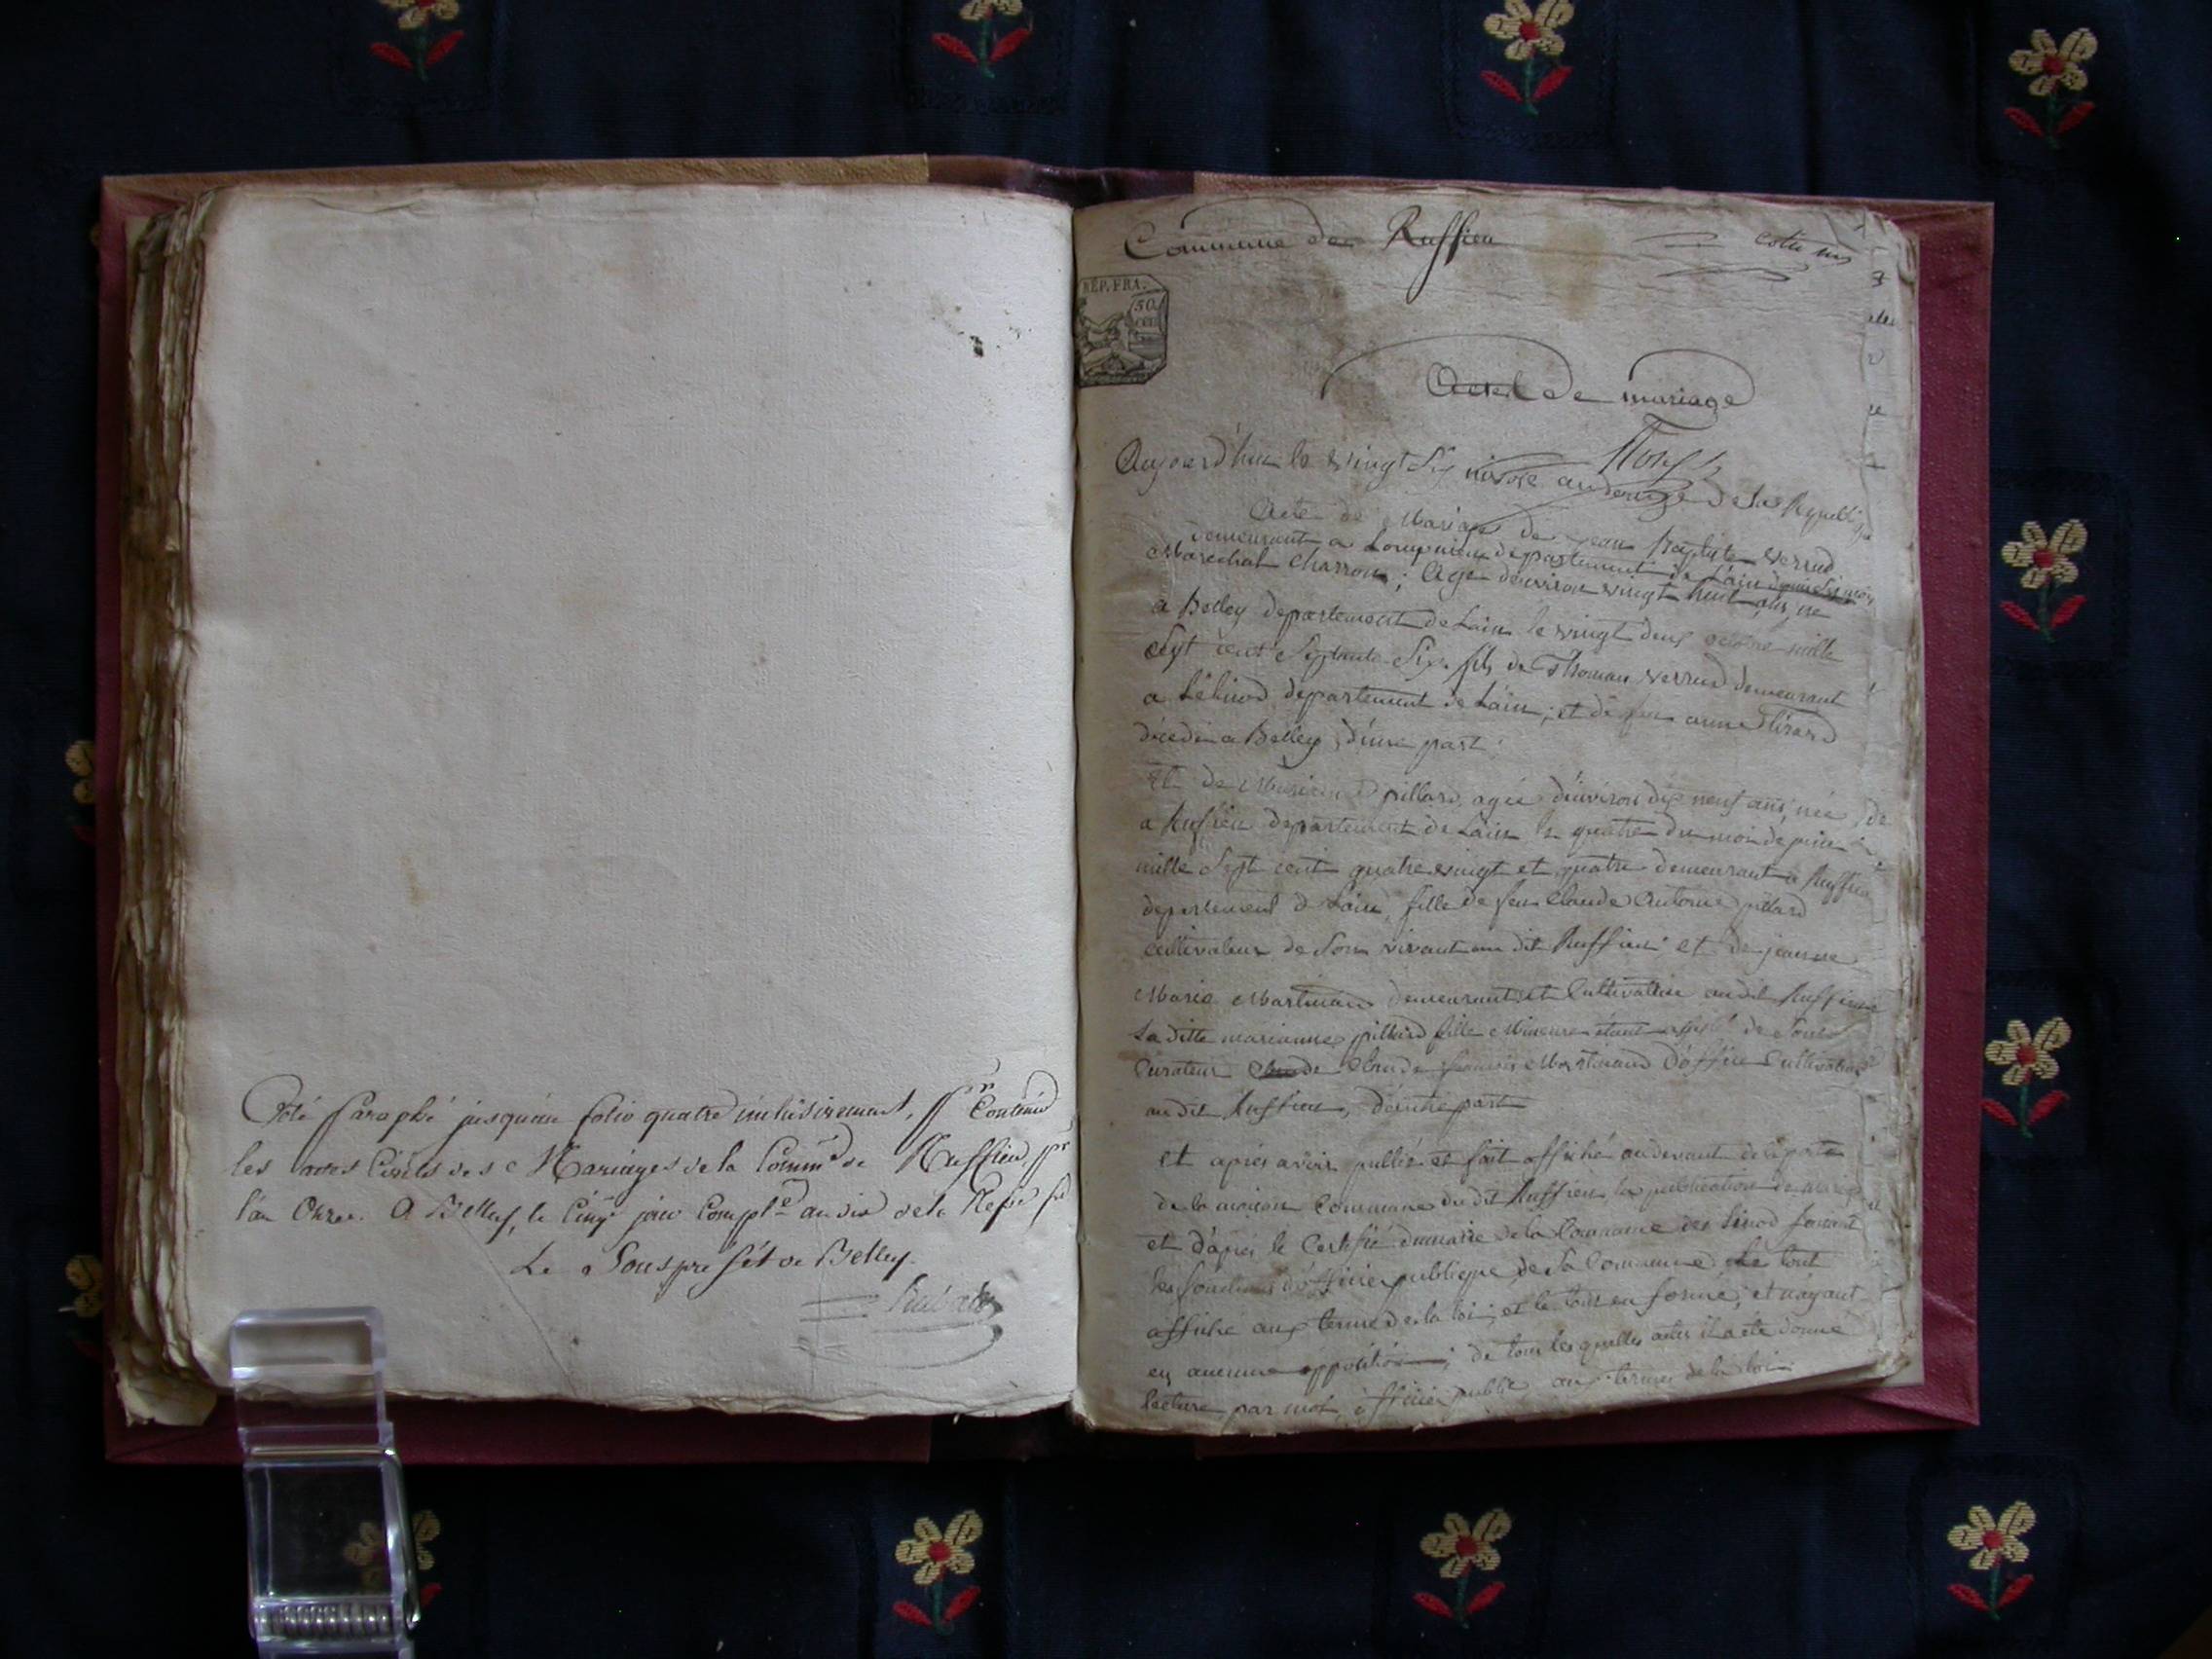 Coté Paraphé jusquau folio quatre inclusivement, pr Contenir
les actes Civils des Mariages de la Comme de Ruffieu pr
l'an Onze. A Belley, le Cinqe jour Complre an dix de la Repe
Le Souspréfét de Belley.
Commune de Ruffieu
RÉP. FRA.
50
CEN
Acte de mariage
Aujourd'hui le vingt six nivose an douze de la Republique
Acte de Mariage de jean Baptiste verrud
demeurant a Lompnieu departement de Lain depuis six mois
Marechal Charron; Agé denviron vingt huit ans, né
a Belley departement de Lain le vingt deux octobre mille
Sept cent Septante Six. fils de Thomas verrud demeurant
a departement de Lain; et de feu anne
décédée a Belley, d'une part;
Et de pillard, agée d'environ dix neuf ans, née
a Ruffieu departement de Lain le quatre du mois de
mille Sept cent quatre vingt et quatre demeurant a Ruffieu
departement de Lain, fille de feu Claude Antoine pillard
Cultivateur de Son vivant au dit Ruffieu et de jeanne
Marie Martinand demeurant et Cultivatrice audit Ruffieu
La ditte marianne pillard fille Mineure étant assisté de Son
Curateur Claude françois Martinand d'office Cultivateur
au dit Ruffieu, d'autre part
et aprés avoir publié et fait affiché audevant de la porte
de la maison Commune du dit Ruffieu la publication de
et d'aprés le Certifié dumaire de la Commune de faisant
les fonctions d'officier publique de Sa Commune Le tout
affiché aux terme de la loi; et le tout en forme; et nayant
eu aucunne opposition; de tous les quelles actes il a été donné
lecture par moi, officier public aux termes de la loi